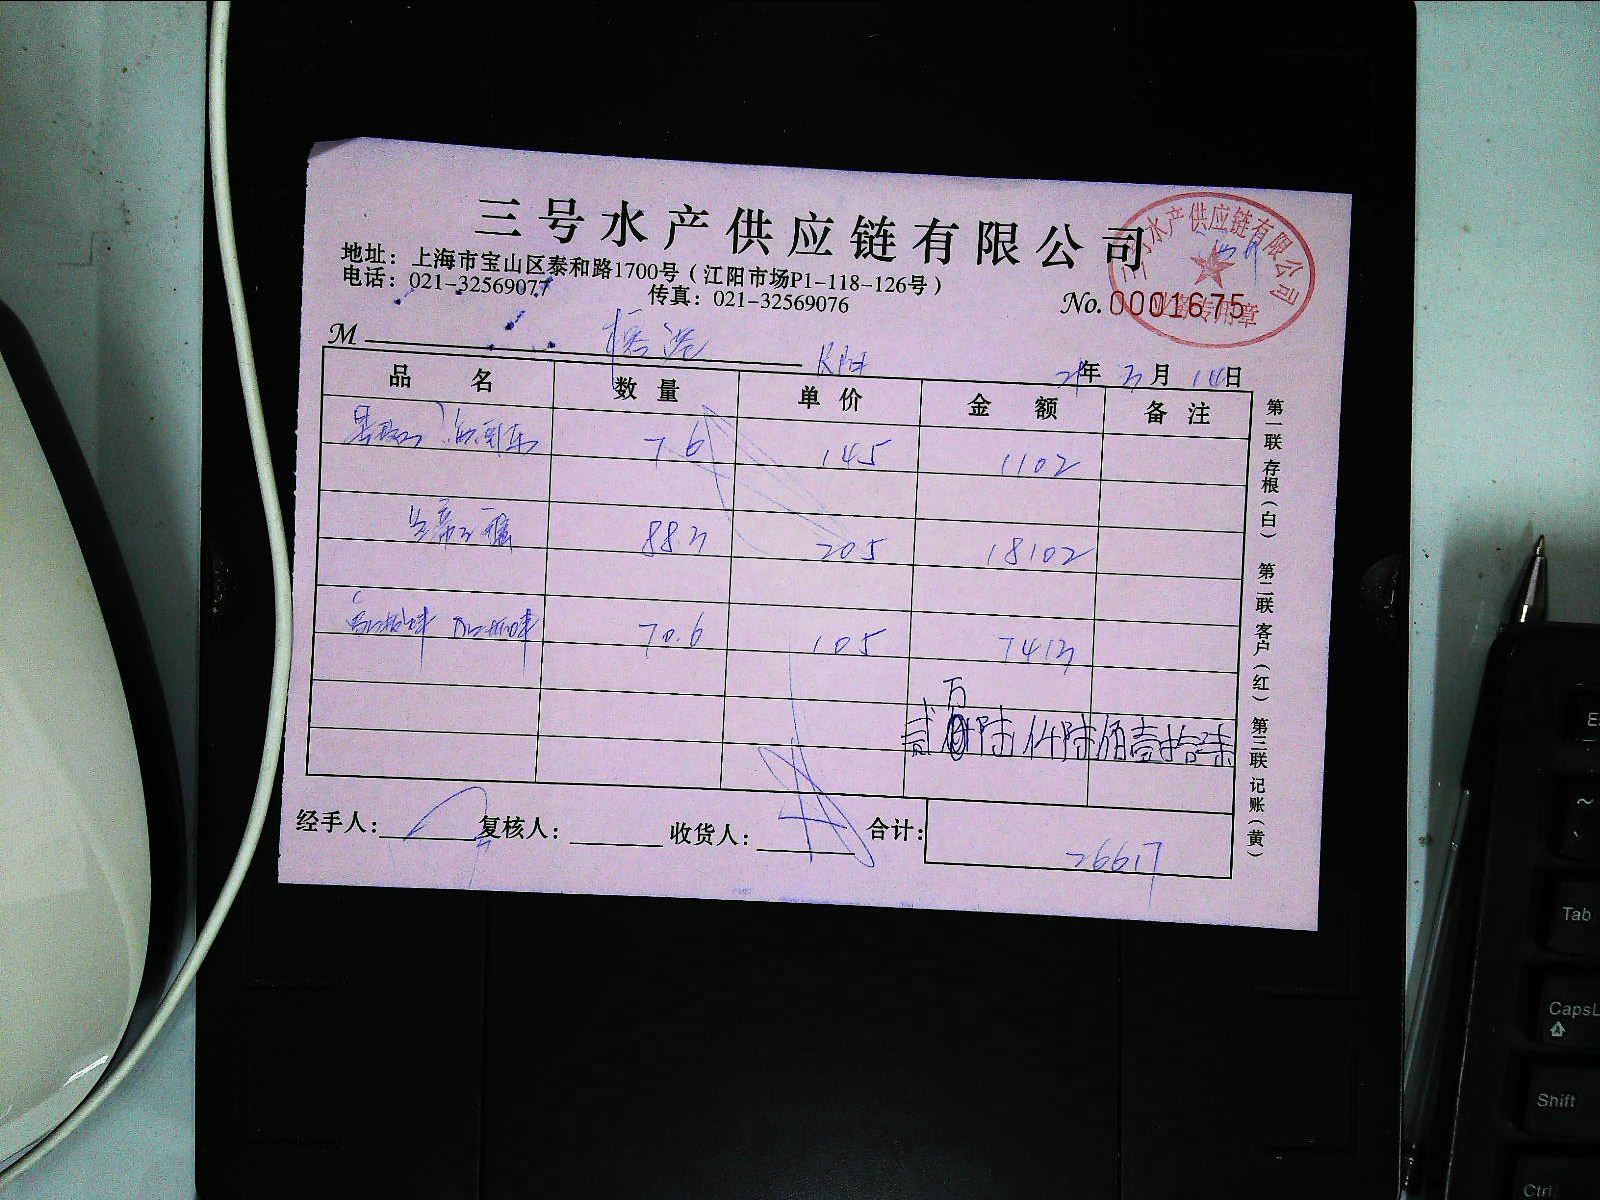 三号水产供应链有限公司
地址：上海市宝山区泰和路1700号（江阳市场P1-118-126号）
电话：021-32569077 传真：021-32569076
No. 0001675
三号水产供应链有限公司
业务专用章
M
21年3月14日
品名 数量 单价 金额 备注
7.6 145 1102
88.3 205 18102
70.6 105 7413
贰万陆仟陆佰壹拾柒
经手人： 复核人： 收货人： 合计： 26617
第一联 存根（白） 第二联 客户（红） 第三联 记账（黄）
Tab
CapsL
Shift
Ctrl